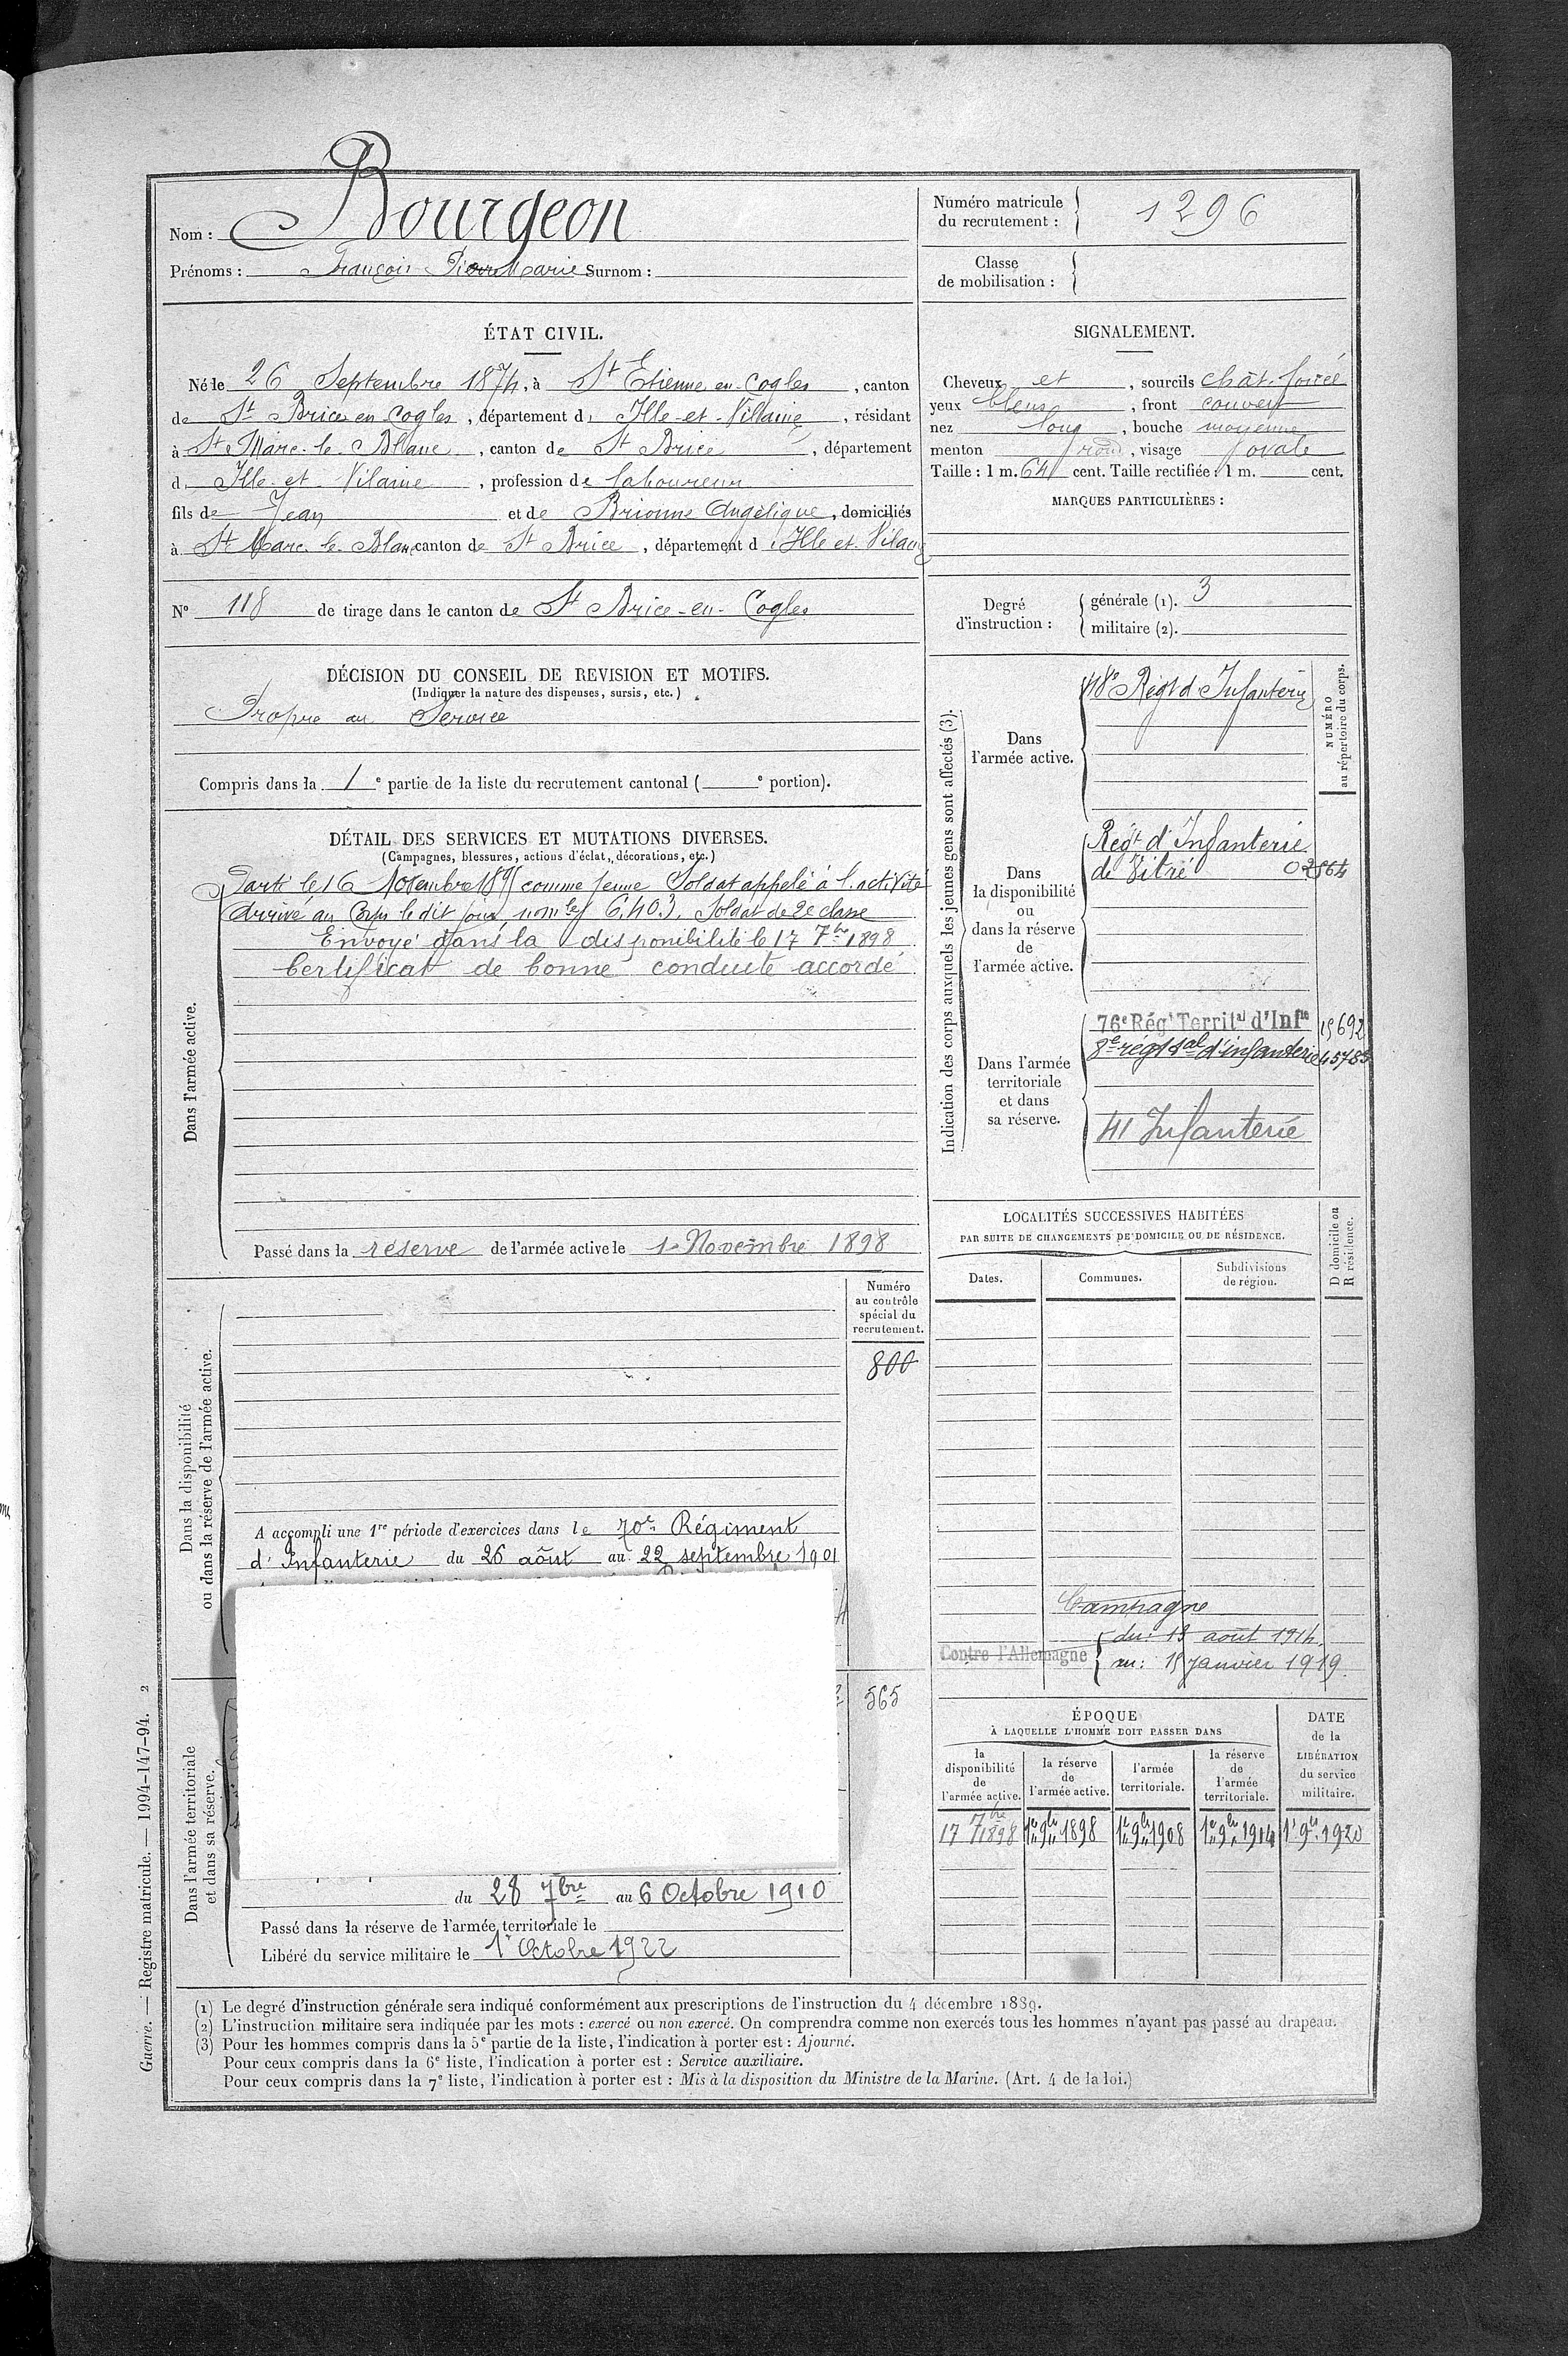 Nom : Bourgeon
Prénoms : François Pierre Marie Surnom :
Numéro matricule du recrutement : 1296
Classe de mobilisation :
ÉTAT CIVIL.
Né le 26 Septembre 1874, à St Etienne en Cogles, canton
de St Brice en Cogles, département d' Ille-et-Villaine, résidant
à St Marc-le-Blanc, canton de St Brice, département
d' Ille-et-Vilaine, profession de laboureur
fils de Jean et de Brionne Angélique, domiciliés
à St Marc le Blanc canton de St Brice, département d' Ille et Vilaine
SIGNALEMENT.
Cheveux et, sourcils chât. foncé
yeux bleus, front couvert
nez long, bouche moyenne
menton rond, visage ovale
Taille : 1 m. 64 cent. Taille rectifiée : 1 m. cent.
MARQUES PARTICULIÈRES :
N° 118 de tirage dans le canton de St Brice-en-Cogles
Degré d'instruction : générale (1). 3
militaire (2).
DÉCISION DU CONSEIL DE REVISION ET MOTIFS.
(Indiquer la nature des dispenses, sursis, etc.)
Propre au Service
Compris dans la 1e partie de la liste du recrutement cantonal ( e portion).
DÉTAIL DES SERVICES ET MUTATIONS DIVERSES.
(Campagnes, blessures, actions d'éclat, décorations, etc.)
Dans l'armée active.
Parti le 16 Novembre 1895 comme jeune Soldat appelé à l'activité
Arrivé au Corps le dit jour, nom les 6.403. Soldat de 2e classe
Envoyé dans la disponibilité le 17 7bre 1898
Certificat de bonne conduite accordé
Passé dans la réserve de l'armée active le 1er Novembre 1898
Indication des corps auxquels les jeunes gens sont affectés (3).
NUMÉRO au répertoire du corps.
Dans l'armée active.
48e Régt d'Infanterie
Dans la disponibilité ou dans la réserve de l'armée active.
Régt d'Infanterie
de Vitré 02564
Dans l'armée territoriale et dans sa réserve.
76e Régt Territal d'Infie 15692
8e régt tal d'infanterie 45783
41 Infanterie
Dans la disponibilité ou dans la réserve de l'armée active.
Numéro au contrôle spécial du recrutement.
800
A accompli une 1re période d'exercices dans le 70e Régiment
d'Infanterie du 26 août au 22 septembre 1901
LOCALITÉS SUCCESSIVES HABITÉES
PAR SUITE DE CHANGEMENTS DE DOMICILE OU DE RÉSIDENCE.
D domicile ou R résidence.
Dates. Communes. Subdivisions de région.
Campagne
Contre l'Allemagne
du : 13 août 1914
au : 15 janvier 1919.
Dans l'armée territoriale et dans sa réserve.
565
du 28 7bre au 6 Octobre 1910
Passé dans la réserve de l'armée territoriale le
Libéré du service militaire le 1er Octobre 1922
ÉPOQUE
À LAQUELLE L'HOMME DOIT PASSER DANS
la disponibilité de l'armée active.
la réserve de l'armée active.
l'armée territoriale.
la réserve de l'armée territoriale.
DATE de la LIBÉRATION du service militaire.
17 7bre 1898 1er 9bre 1898 1er 9bre 1908 1er 9bre 1914 1er 9bre 1920
(1) Le degré d'instruction générale sera indiqué conformément aux prescriptions de l'instruction du 4 décembre 1889.
(2) L'instruction militaire sera indiquée par les mots : exercé ou non exercé. On comprendra comme non exercés tous les hommes n'ayant pas passé au drapeau.
(3) Pour les hommes compris dans la 5e partie de la liste, l'indication à porter est : Ajourné.
Pour ceux compris dans la 6e liste, l'indication à porter est : Service auxiliaire.
Pour ceux compris dans la 7e liste, l'indication à porter est : Mis à la disposition du Ministre de la Marine. (Art. 4 de la loi.)
Guerre. — Registre matricule. — 1994-147-94. 2